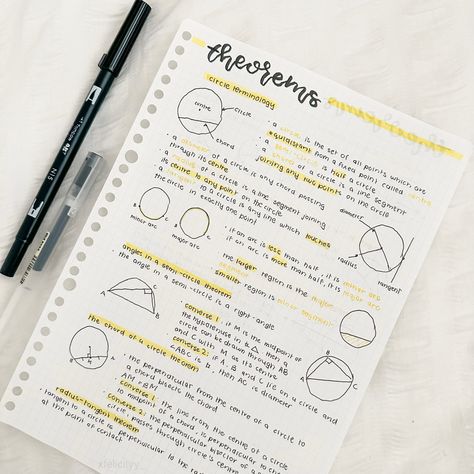 theorems
circle terminology
centre
circle
chord
· a circle is the set of all points which are
equidistant from a fixed point called centre
· a semi-circle is half a circle
· a chord of a circle is a line segment
joining any two points on the circle
· a diameter of a circle is any chord passing
through its centre
· a radius of a circle is a line segment joining
its centre to any point on the circle
· a tangent to a circle is any line which touches
the circle in exactly one point
diameter
radius
tangent
A
B
minor arc
A
B
major arc
· if an arc is less than half, it is minor arc
if an arc is more than half, it is major arc
· the larger region is the major
segment
smaller region is minor segment
angles in a semi-circle theorem
· the angle in a semi-circle is a right-angle
converse 1: if M is the midpoint of
the hypotenuse in a Δ, then a
circle can be drawn through A, B
and C with M as its centre
converse 2: if A, B and C lie on a circle and
∠ABC is 90, then AC is diameter
B
A
C
the chord of a circle theorem
· the perpendicular from the centre of a circle to
a chord bisects the chord
AM = BM
· converse 1: the line from the centre of a circle
converse 2: the perpendicular bisector of a chord of a
circle passes through circle's centre
radius-tangent theorem
· tangent to a circle is perpendicular to the radius
at the point of contact
Tombow
ABT
N15
xfelicityy